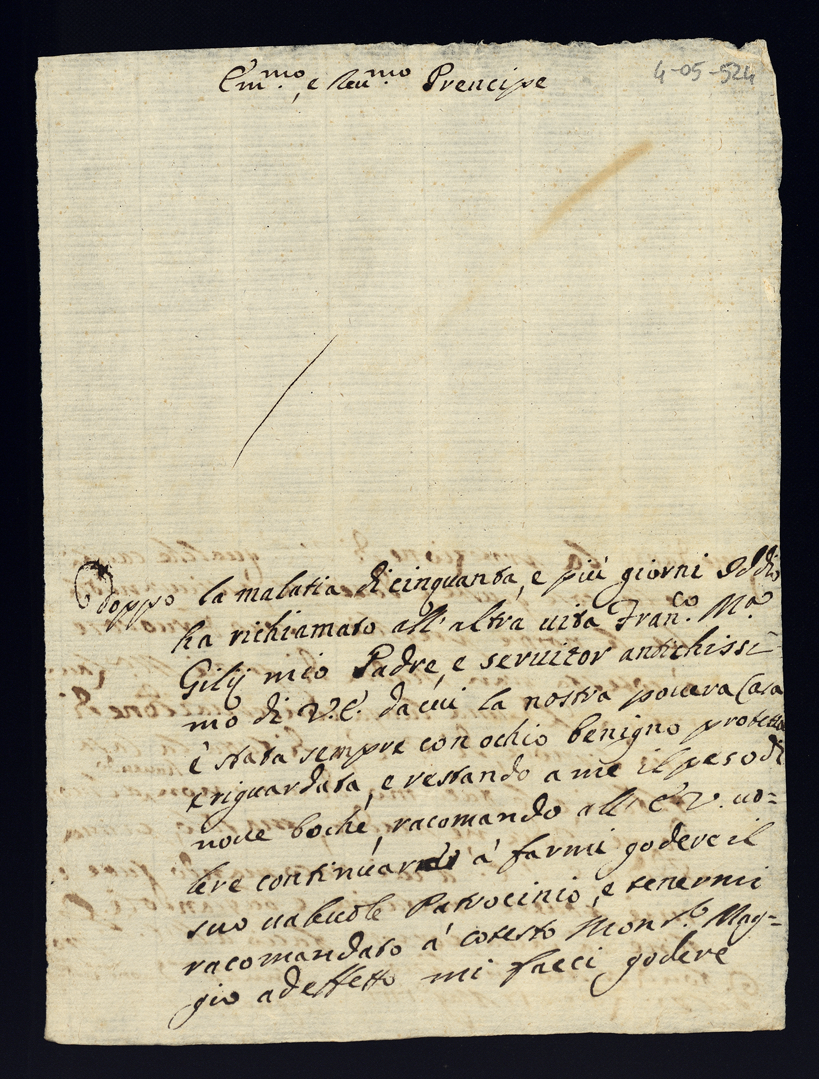 Em.mo, e Reu.mo Prencipe
4-05-524
Doppo la malatia di cinquanta, e più giorni Iddio
ha richiamato all'altra uita Fran.co M.a
Gilij mio Padre, e seruitor antichissi-
mo di V.E. da cui la nostra pouera Casa
è stata sempre con ochio benigno protetta
e riguardata, e restando a me il peso di
noue boche, racomando all' E.V. uo=
lere continuar à farmi godere il
suo ualeuole Patrocinio, e tenermi
racomandato a' cotesto Mons.r Mag=
gio ad effetto mi facci godere